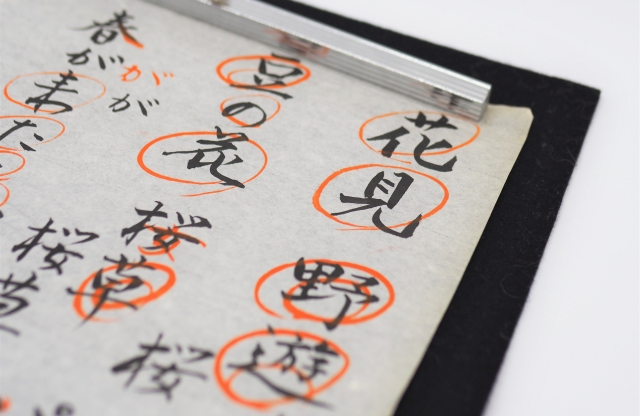 花見
野遊
豆の花
桜草
桜
春が
がが
来た
桜草